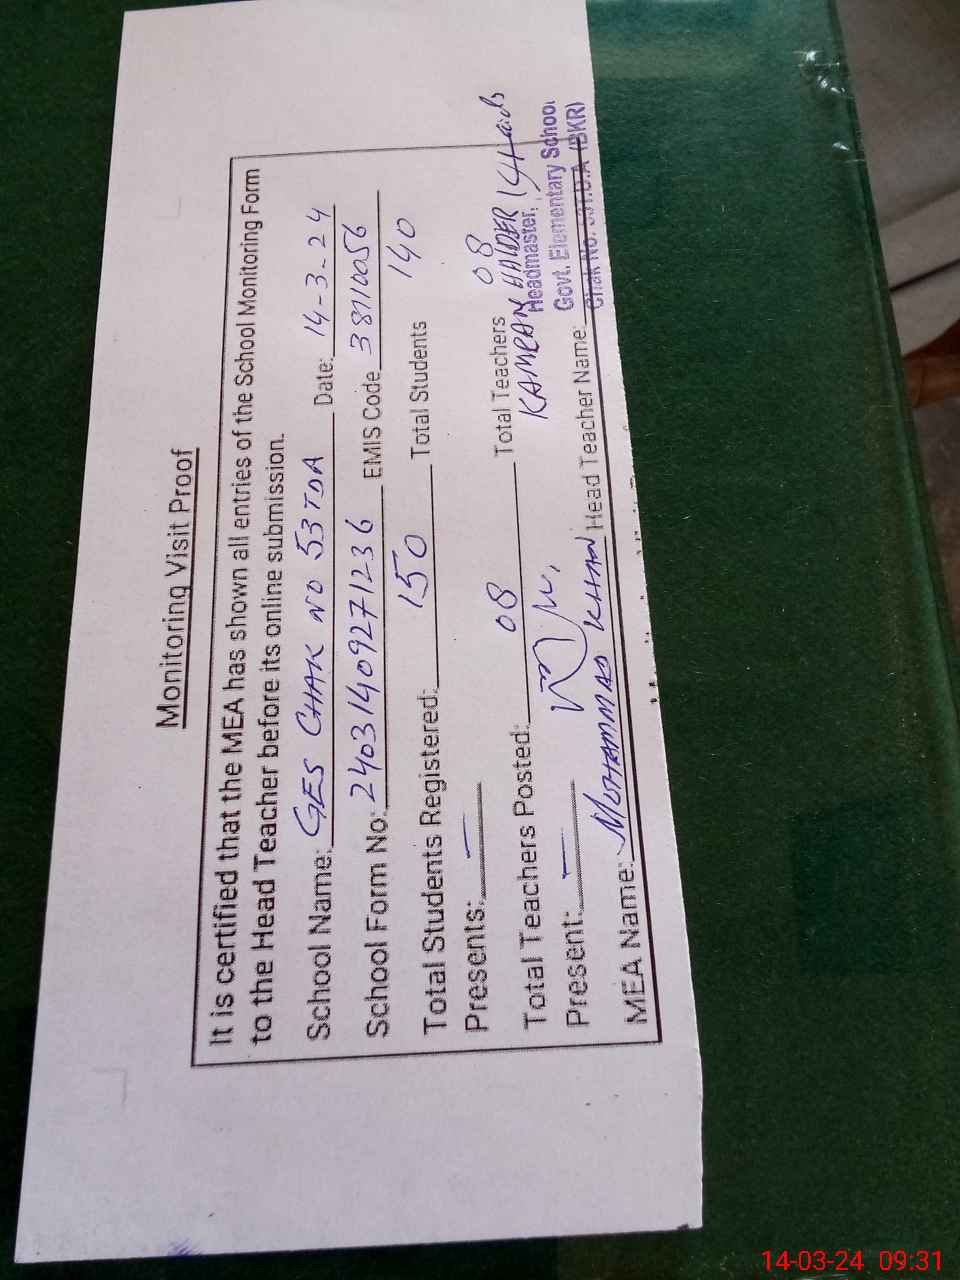 Monitoring Visit Proof
It is certified that the MEA has shown all entries of the School Monitoring Form
to the Head Teacher before its online submission.
School Name: GES CHAK NO 53 TDA Date: 14-3-24
School Form No: 24031409271236 EMIS Code 38710056
Total Students Registered: 150 Total Students 140
Presents:
Total Teachers Posted: 08 Total Teachers 08
Present:
KAMRAN HAIDER
Headmaster,
Govt. Elementary School
Chak No. T.D.A (BKR)
MEA Name: MUHAMMAD KHAN Head Teacher Name:
14-03-24 09:31